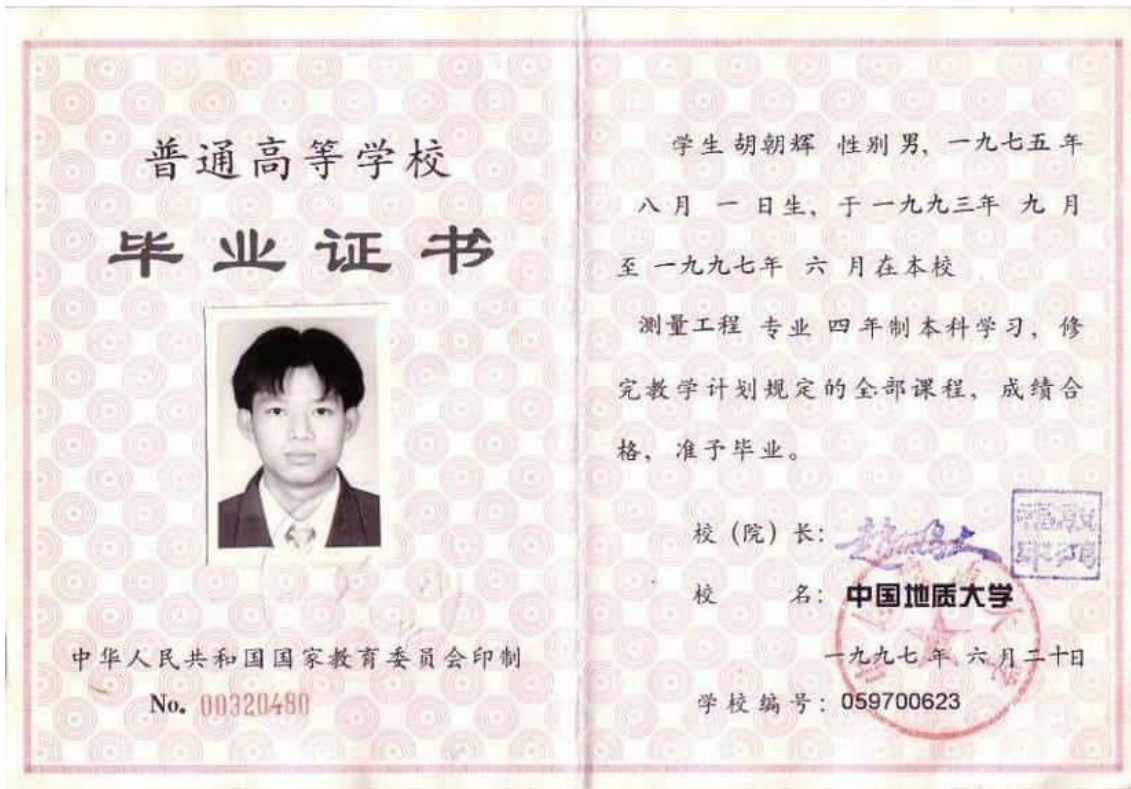 普通高等学校
毕业证书
中华人民共和国国家教育委员会印制
No. 00320480
学生胡朝辉 性别男, 一九七五年
八月 一 日生, 于一九九三年 九 月
至一九九七年 六 月在本校
测量工程 专业 四年制本科学习, 修
完教学计划规定的全部课程, 成绩合
格, 准予毕业。
校(院)长:
校 名: 中国地质大学
一九九七年 六月二十日
学校编号: 059700623